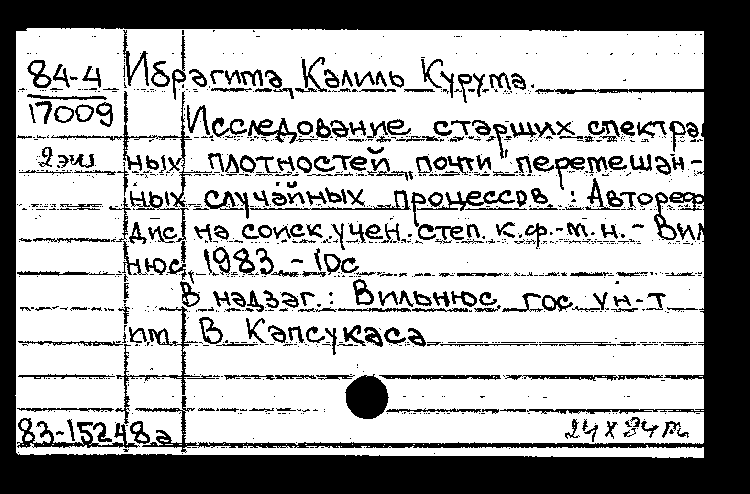 84-4 Ибрагима, Калиль Курума.
17009
Исследование старших спектра
2 экз ных плотностей "почти" перемешан-
ных случайных процессов : Автореф
дис. на соиск. учен. степ. к.ф.-м.н. - Вил
нюс, 1983. - 10с
В надзаг.: Вильнюс. гос. ун-т
им. В. Капсукаса
83-15248а